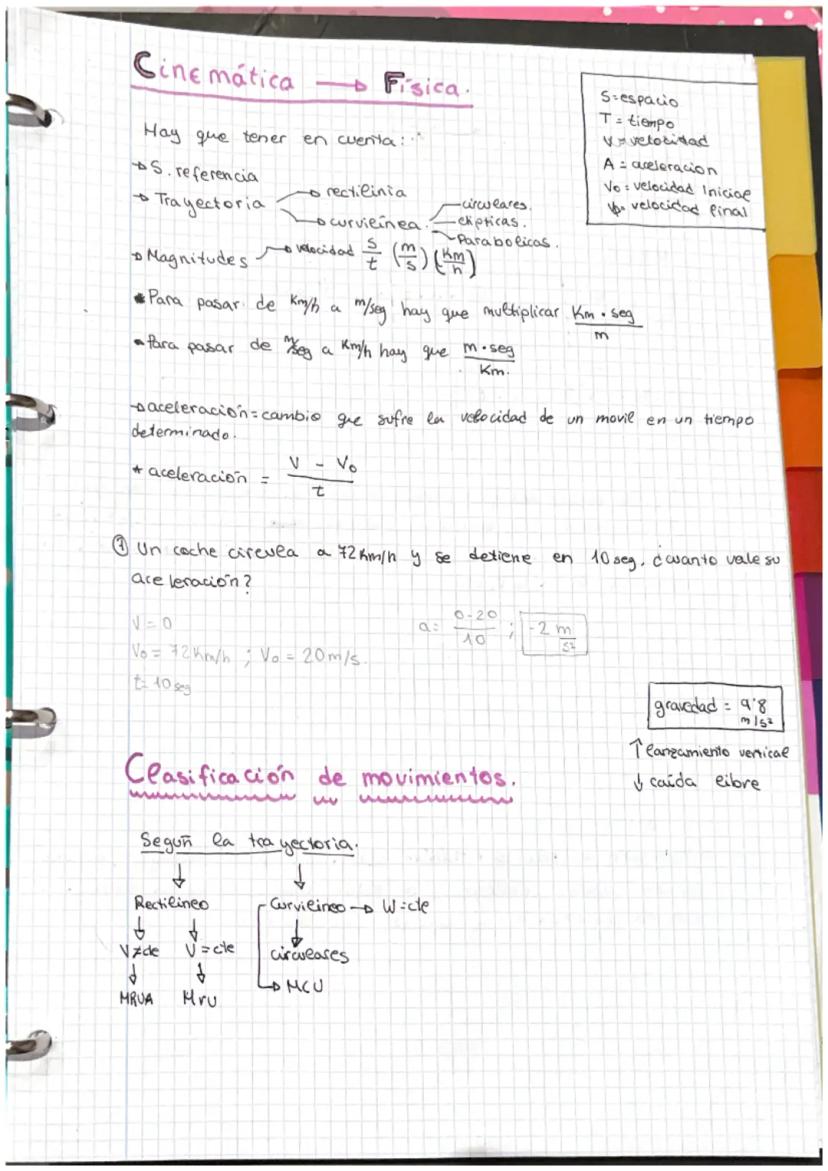 Cinemática → Física.
S=espacio
T= tiempo
V= velocidad
A = aceleracion
Vo = velocidad Inicial
velocidad final
Hay que tener en cuenta:
→ S. referencia
→ Trayectoria → rectilinia
→ curvilínea. circulares.
elípticas.
Parabolicas.
→ Magnitudes → velocidad s/t (m/s) (Km/h)
* Para pasar de Km/h a m/seg hay que multiplicar Km · seg / m
• Para pasar de m/seg a Km/h hay que m · seg / Km.
→ aceleración = cambio que sufre la velocidad de un movil en un tiempo
determinado.
* aceleración = V - Vo / t
① Un coche circula a 72 Km/h y se detiene en 10 seg. ¿cuanto vale su
aceleración?
V = 0
a = 0-20 / 10 ; -2 m/s²
Vo = 72 Km/h ; Vo = 20 m/s.
t = 10 seg
gravedad = 9'8 m/s²
↑ lanzamiento vertical
↓ caída libre
Clasificación de movimientos.
Según la trayectoria.
↓ ↓
Rectilíneo Curvilineo → W = cte
↓ ↓ ↓
V ≠ cte V = cte circulares
↓ ↓
MRUA Mru → MCU